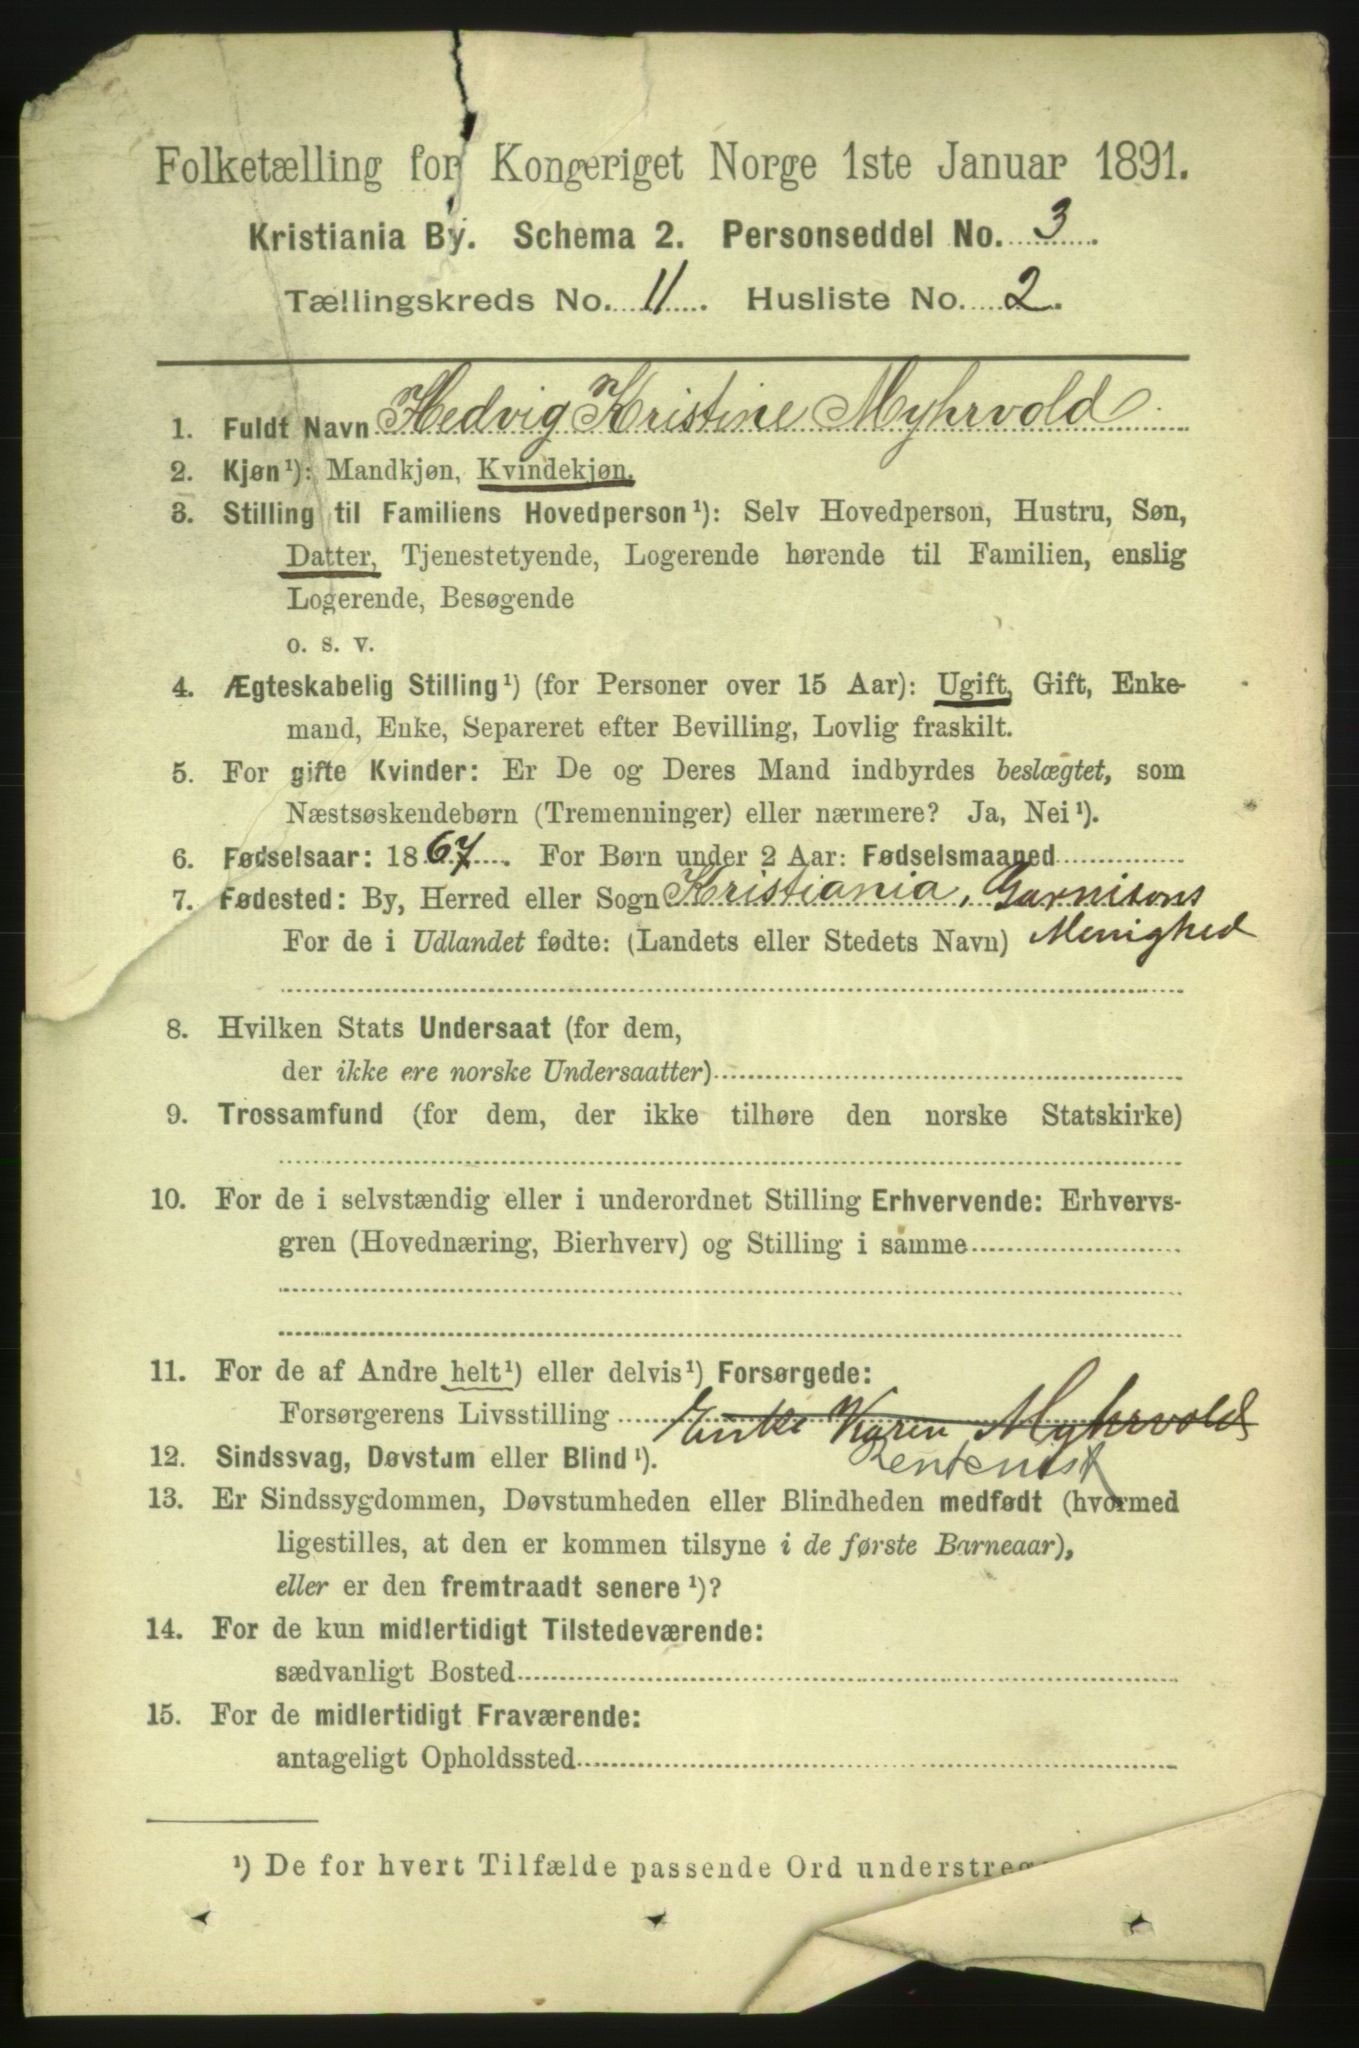 Folketælling for Kongeriget Norge 1ste Januar 1891.
Kristiania By. Schema 2. Personseddel No. 3.
Tællingskreds No. 11. Husliste No. 2.
1. Fuldt Navn Hedvig Kristine Myhrvold
2. Kjøn¹): Mandkjøn, Kvindekjøn.
3. Stilling til Familiens Hovedperson¹): Selv Hovedperson, Hustru, Søn,
Datter, Tjenestetyende, Logerende hørende til Familien, enslig
Logerende, Besøgende
o. s. v.
4. Ægteskabelig Stilling¹) (for Personer over 15 Aar): Ugift, Gift, Enke-
mand, Enke, Separeret efter Bevilling, Lovlig fraskilt.
5. For gifte Kvinder: Er De og Deres Mand indbyrdes beslægtet, som
Næstsøskendebørn (Tremenninger) eller nærmere? Ja, Nei¹).
6. Fødselsaar: 1867. For Børn under 2 Aar: Fødselsmaaned
7. Fødested: By, Herred eller Sogn Kristiania, Garnisons
For de i Udlandet fødte: (Landets eller Stedets Navn) Menighed
8. Hvilken Stats Undersaat (for dem,
der ikke ere norske Undersaatter)
9. Trossamfund (for dem, der ikke tilhøre den norske Statskirke)
10. For de i selvstændig eller i underordnet Stilling Erhvervende: Erhvervs-
gren (Hovednæring, Bierhverv) og Stilling i samme
11. For de af Andre helt¹) eller delvis¹) Forsørgede:
Forsørgerens Livsstilling Enke Karen Myhrvold
Rentenist
12. Sindssvag, Døvstum eller Blind¹).
13. Er Sindssygdommen, Døvstumheden eller Blindheden medfødt (hvormed
ligestilles, at den er kommen tilsyne i de første Barneaar),
eller er den fremtraadt senere¹)?
14. For de kun midlertidigt Tilstedeværende:
sædvanligt Bosted
15. For de midlertidigt Fraværende:
antageligt Opholdssted
¹) De for hvert Tilfælde passende Ord understreg